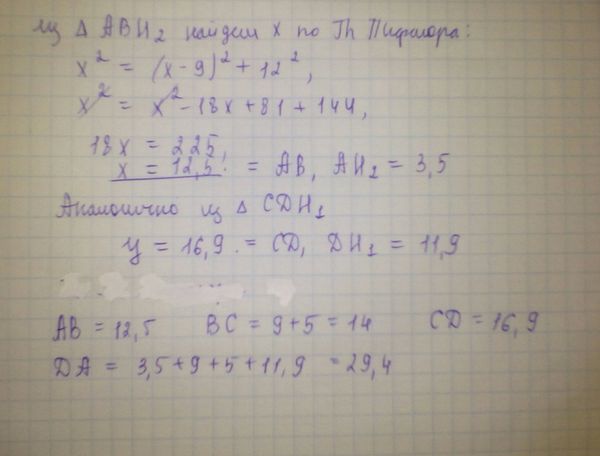 Из Δ ABH₂ найдем x по Th Пифагора:
x² = (x-9)² + 12²,
x² = x² - 18x + 81 + 144,
18x = 225,
x = 12,5. = AB, AH₂ = 3,5
Аналогично из Δ CDH₁
y = 16,9. = CD, DH₁ = 11,9
AB = 12,5 BC = 9+5 = 14 CD = 16,9
DA = 3,5+9+5+11,9 = 29,4